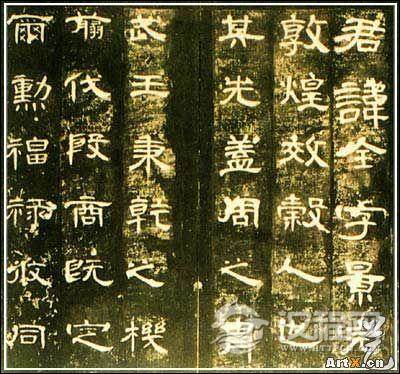 君諱全字景完
敦煌效穀人也
其先蓋周之胄
武王秉乾之機
翦伐殷商既定
爾勳福祿攸同
ArtX.cn